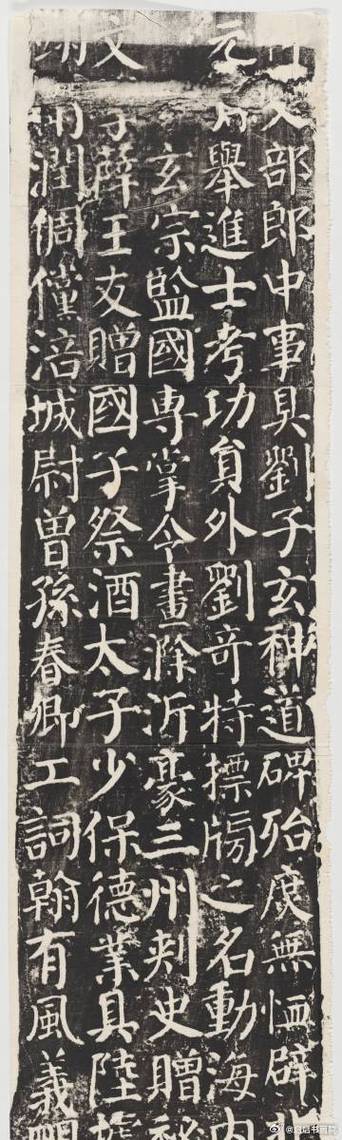 部郎中事具劉子玄神道碑殆庶無恤辟
舉進士考功員外劉奇特摽牓之名動海內
玄宗監國專掌令畫滁沂豪三州刺史贈祕
文薛王友贈國子祭酒太子少保德業具陸
潤倜儻涪城尉曾孫春卿工詞翰有風義明